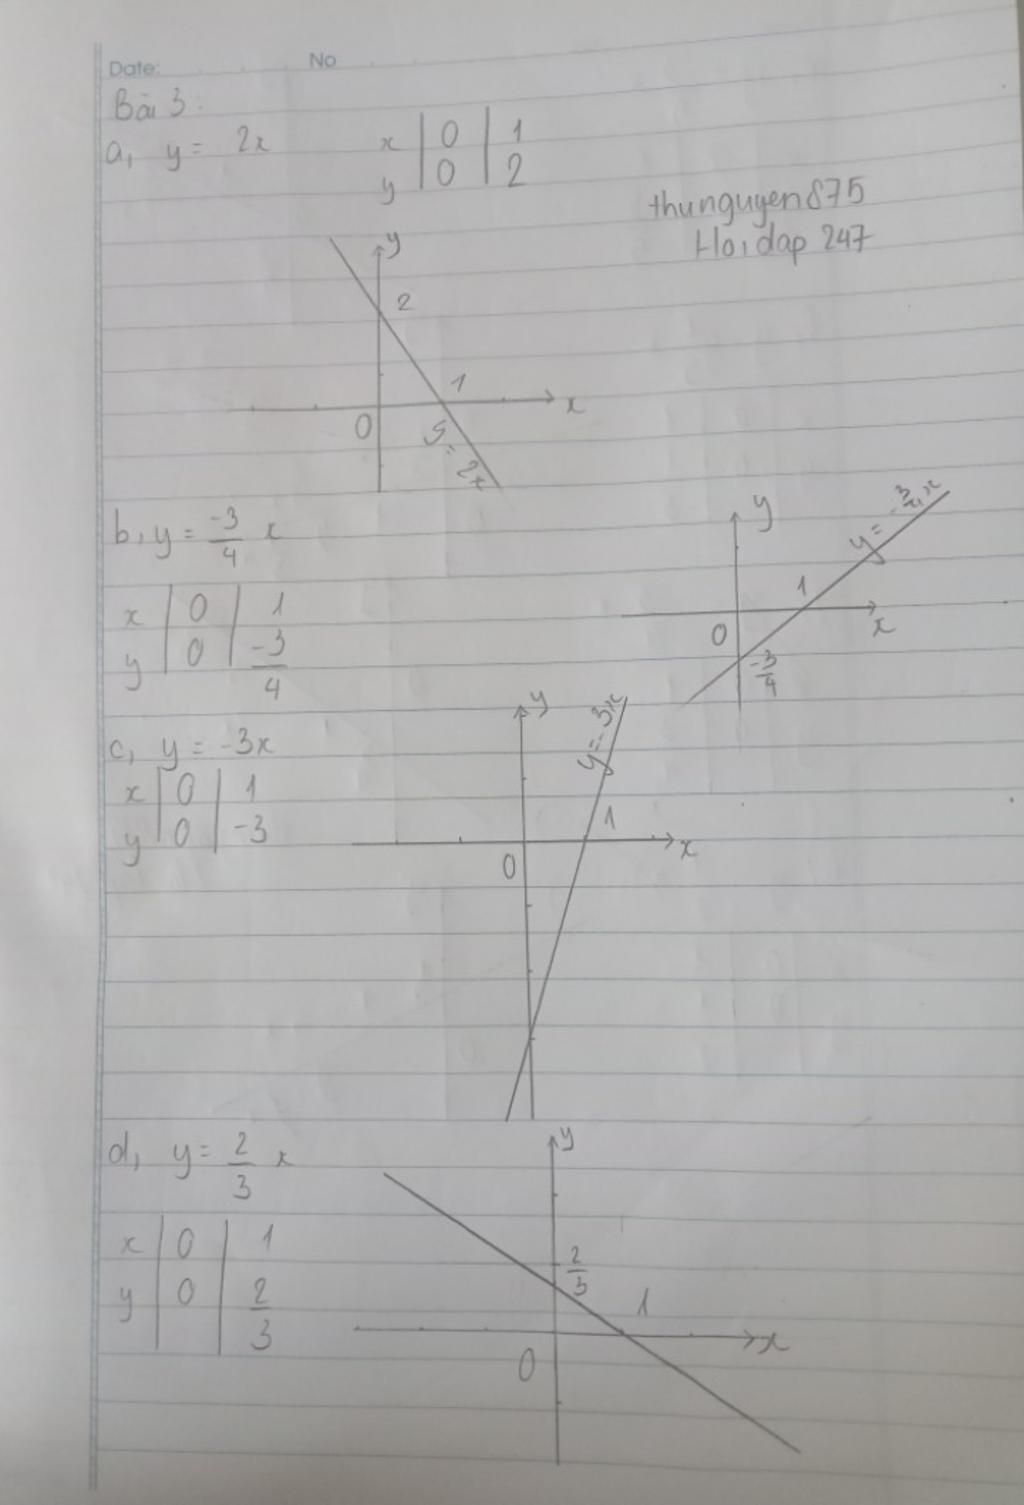 Date: No
Bài 3:
a, y = 2x
x | 0 | 1
y | 0 | 2
thunguyen875
Hoidap 247
y
2
1
x
0
y = 2x
b, y = -3/4 x
x | 0 | 1
y | 0 | -3/4
y
y = -3/4 x
1
0
x
-3/4
c, y = -3x
x | 0 | 1
y | 0 | -3
y
y = -3x
1
0
x
d, y = 2/3 x
x | 0 | 1
y | 0 | 2/3
y
2/3
1
0
x